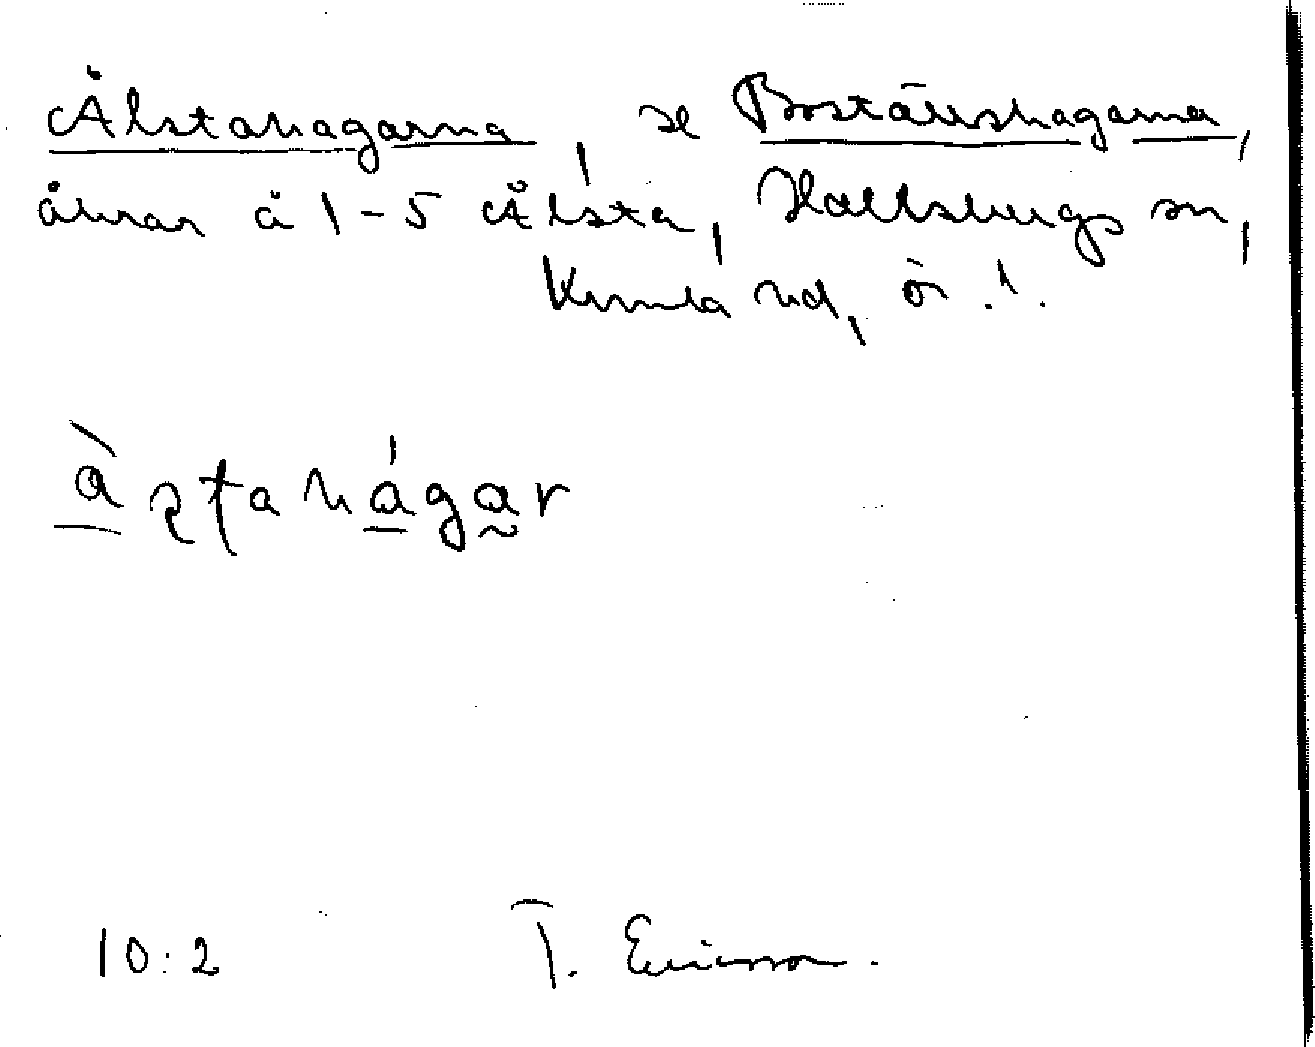 Ålstahagarna, se Boställshagarna,
åkrar å 1-5 Ålsta, Hallsbergs sn,
Kumla hd, ör. l.
àʂtahágar
10:2 T. Ericsson.